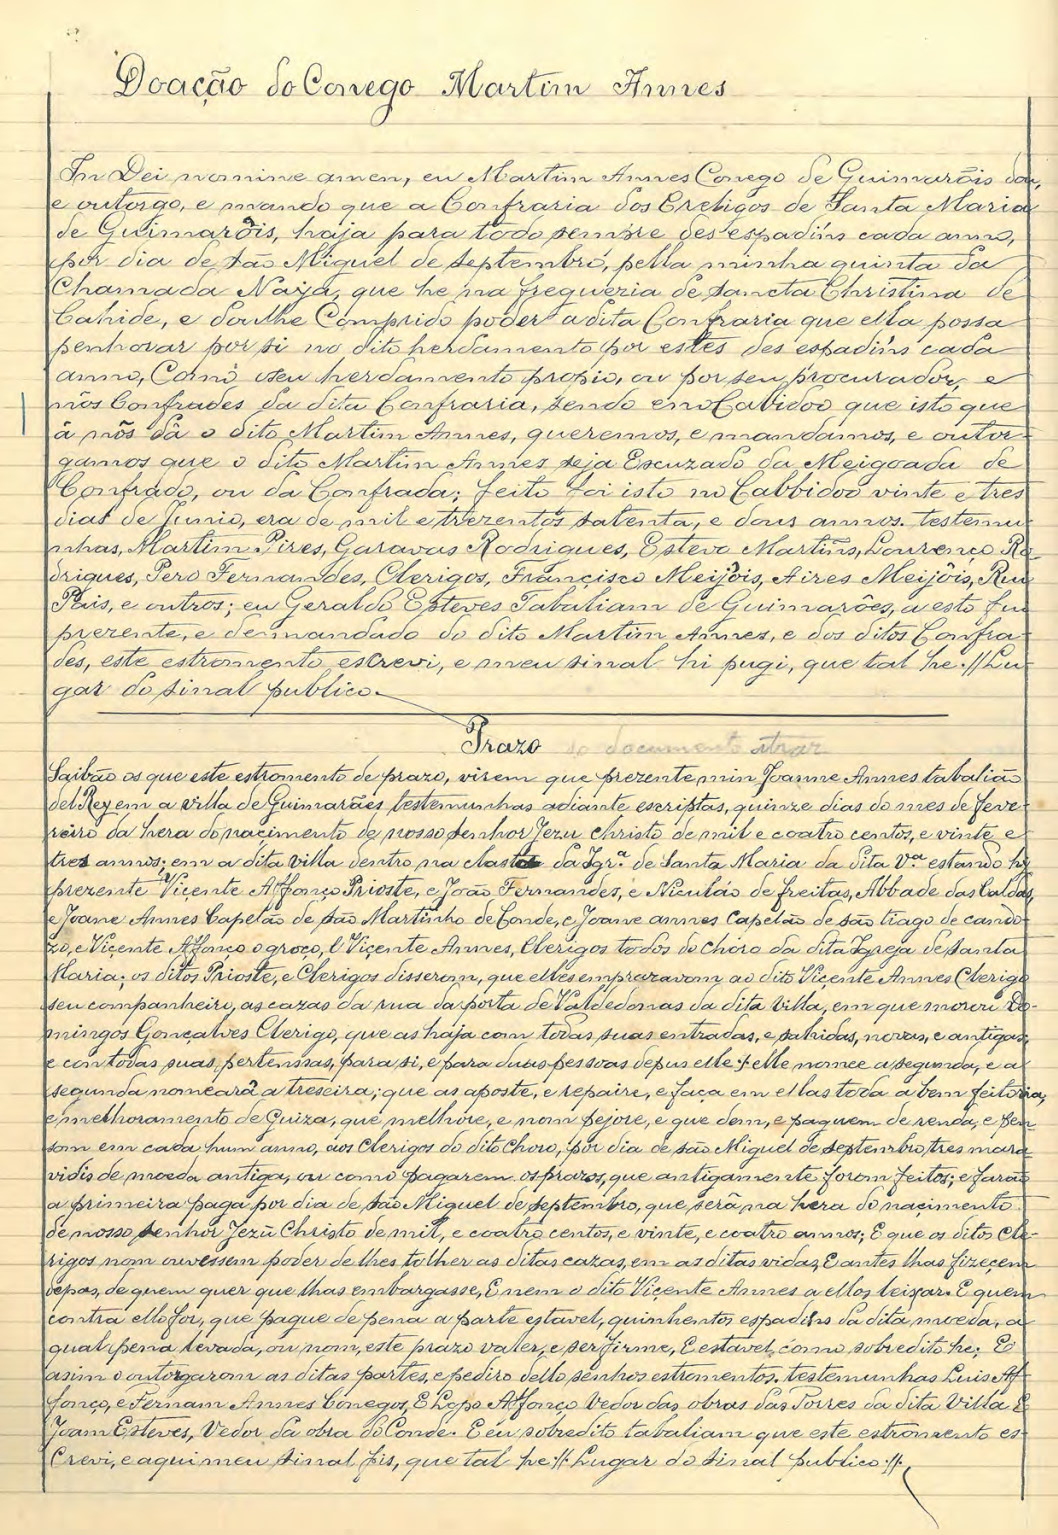 Doação do Conego Martim Annes
In Dei nomine amen, eu Martim Annes Conego de Guimarõis dou,
e outorgo, e mando que a Confraria dos Creligos de Santa Maria
de Guimarõis, haja para todo sempre des espadins cada anno,
por dia de são Miguel de septembro, pella minha quinta da
Chamada Naya, que he na freguezia de sancta Christina de
Cahide, e doulhe Comprido poder a dita Confraria que ella possa
penhorar por si no dito herdamento por estes des espadins cada
anno, Como oseu herdamento propio, ou por seu procurador, e
nós Confrades da dita Confraria, sendo em Cabidoo que isto que
â nós dâ o dito Martim Annes, queremos, e mandamos, e outor-
gamos que o dito Martim Annes seja Escuzado da Meigoada de
Confrado, ou da Confrada; feito foi isto no Cabbidoo vinte e tres
dias de Junio, era de mil e trezentos satenta, e dous annos. testemu-
nhas, Martim Pires, Garavas Rodrigues, Estevo Martins, Lourenço Ro-
drigues, Pero Fernandes, Clerigos, Françisco Meijôis, Aires Meijôis, Rui
Pais, e outros; eu Geraldo Esteves Tabaliam de Guimarães, a esto fui
prezente, e demandado do dito Martim Annes, e dos ditos Confra-
des, este estromento escrevi, e meu sinal hi pugi, que tal he.//Lu-
gar do sinal publico.
Prazo do documento atraz
Saibão os que este estromento de prazo, virem que prezente min Joanne Annes tabalião
del Rey em a villa de Guimarães, testemunhas adiante escriptas, quinze dias do mes de feve-
reiro da hera do naçimento de nosso senhor Jezu christo de mil e coatro centos, e vinte e
tres annos; em a dita villa dentro na da Igr.ª de Santa Maria da dita V.ª estando hy
prezente Viçente Affonço Prioste, e João Fernandes, e Niculáo de freitas, Abbade das Caldas,
e Joane Annes Capelão de são Martinho de Conde, e Joane annes Capelão de são tiago de cando-
zo, e Viçente Affonço ogroço, e Viçente Annes, Clerigos todos do chôro da dita Igreja de Santa
Maria; os ditos Prioste, e Clerigos disserom, que elles emprazavom ao dito Viçente Annes Clerigo
seu companheiro, as cazas da rua da porta de Valdedonas da dita Villa, em que morou Do-
mingos Gonçalves Clerigo, que as haja com todas suas entradas, e sahidas, novas, e antigas,
e con todas suas pertenssas, para si, e para duas pessoas depus elle: elle nomee a segunda, e a
segunda nomearâ a treseira; que as aposte, e repaire, e faça em ellas toda a bem feitoria,
e melhoramento de Guiza, que melhore, e nom pejore, e que dem, e paguem de renda, e pen
som em cada hum anno, aos Clerigos do dito Choro, por dia de são Miguel de septembro, tres mara
vidis de moeda antiga, ou como pagarem os prazos, que antigamente forom feitos; e farão
a primeira paga por dia de são Miguel de septembro, que serâ na hera do naçimento
de nosso senhor Jezû Christo de mil, e coatro centos, e vinte, e coatro annos; E que os ditos Cle-
rigos nom ouvessem poder de lhes tolher as ditas cazas, em as ditas vidas, E antes lhas fizeçem
depas, de quem quer que lhas embargasse, E nem o dito Viçente Annes a ellos leixar. E quem
contra ello for, que pague de pena a parte estavel, quinhentos espadins da dita moeda, a
qual pena levada, ou nom, este prazo valer, e ser firme, E estavel, como sobredito he; E
asim o outorgarom as ditas partes, e pediro dello senhos estromentos. testemunhas Luis Af-
fonço, e Fernam Annes Conegos, E Lopo Affonço Vedor das obras das Torres da dita Villa E
Joam Esteves, Vedor da obra do Conde. E eu sobredito tabaliam que este estromento es-
Crevi, e aqui meu sinal fis, que tal he // Lugar do sinal publico //.